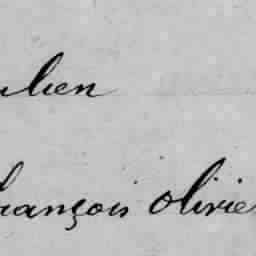 ulien
françois olivie